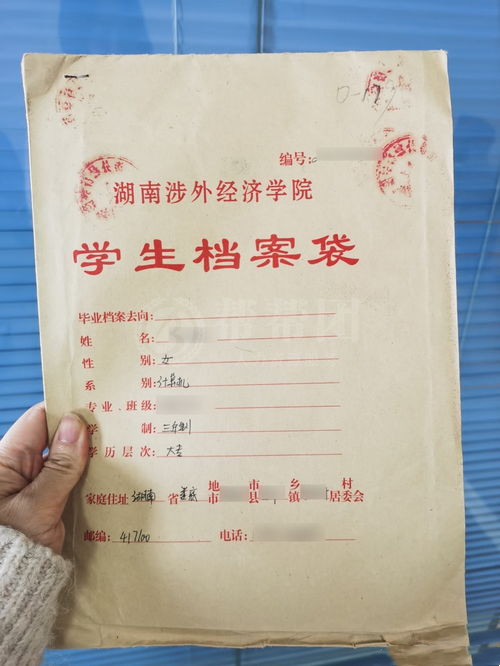 0-17
编号:
湖南涉外经济学院
学生档案袋
毕业档案去向:
姓名:
性别: 女
系别: 计算机
专业.班级:
学制: 三年制
学历层次: 大专
家庭住址 湖南 省 娄底 地市 市县 乡镇 村居委会
邮编: 417100 电话:
帮帮团